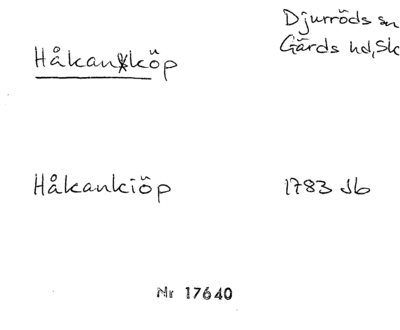 Håkanköp
Djurröds sn
Gärds hd, Sk
Håkankiöp
1783 Jb
Nr 17640